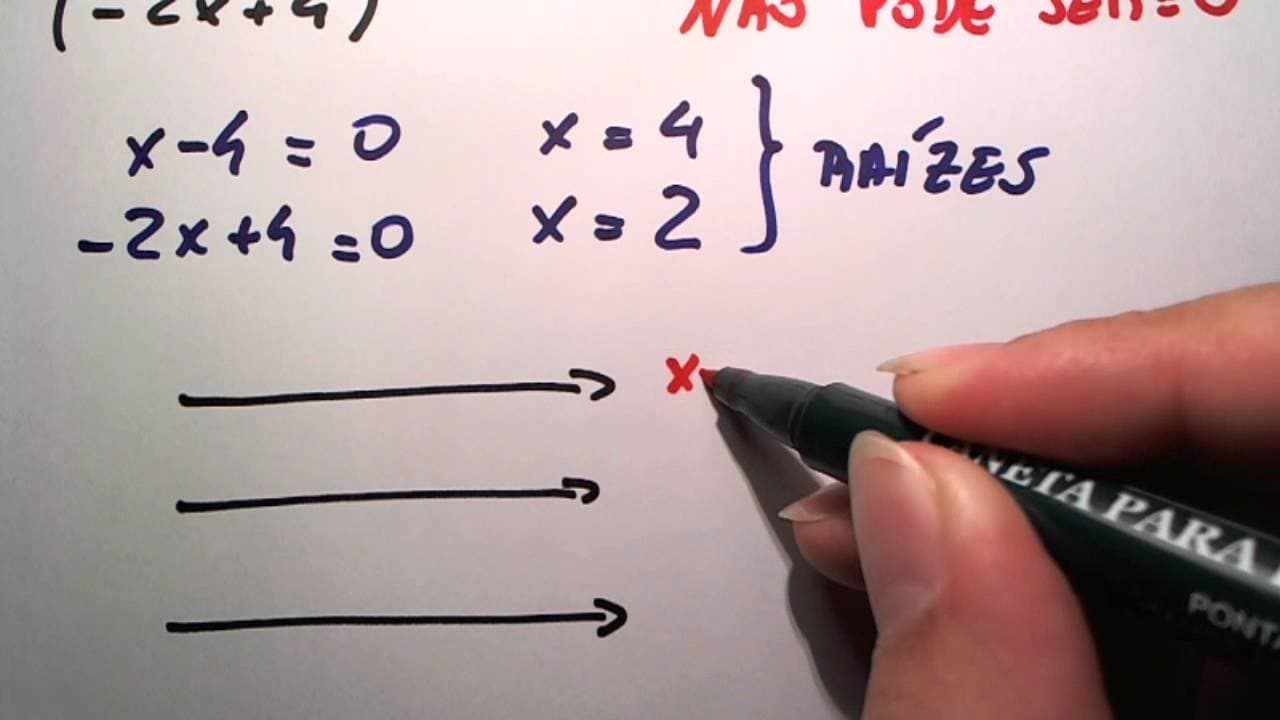 (-2x+4) NÃO PODE SER = 0
x-4 = 0 x = 4
-2x+4 = 0 x = 2
RAÍZES
x
CANETA PARA
PONTA